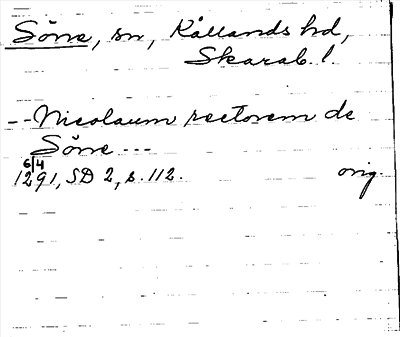 Söne, sn, Kållands hd,
Skarab. l.
-- Nicolaum rectorem de
Söne ---
6/4
1291, SD 2, s. 112. orig.